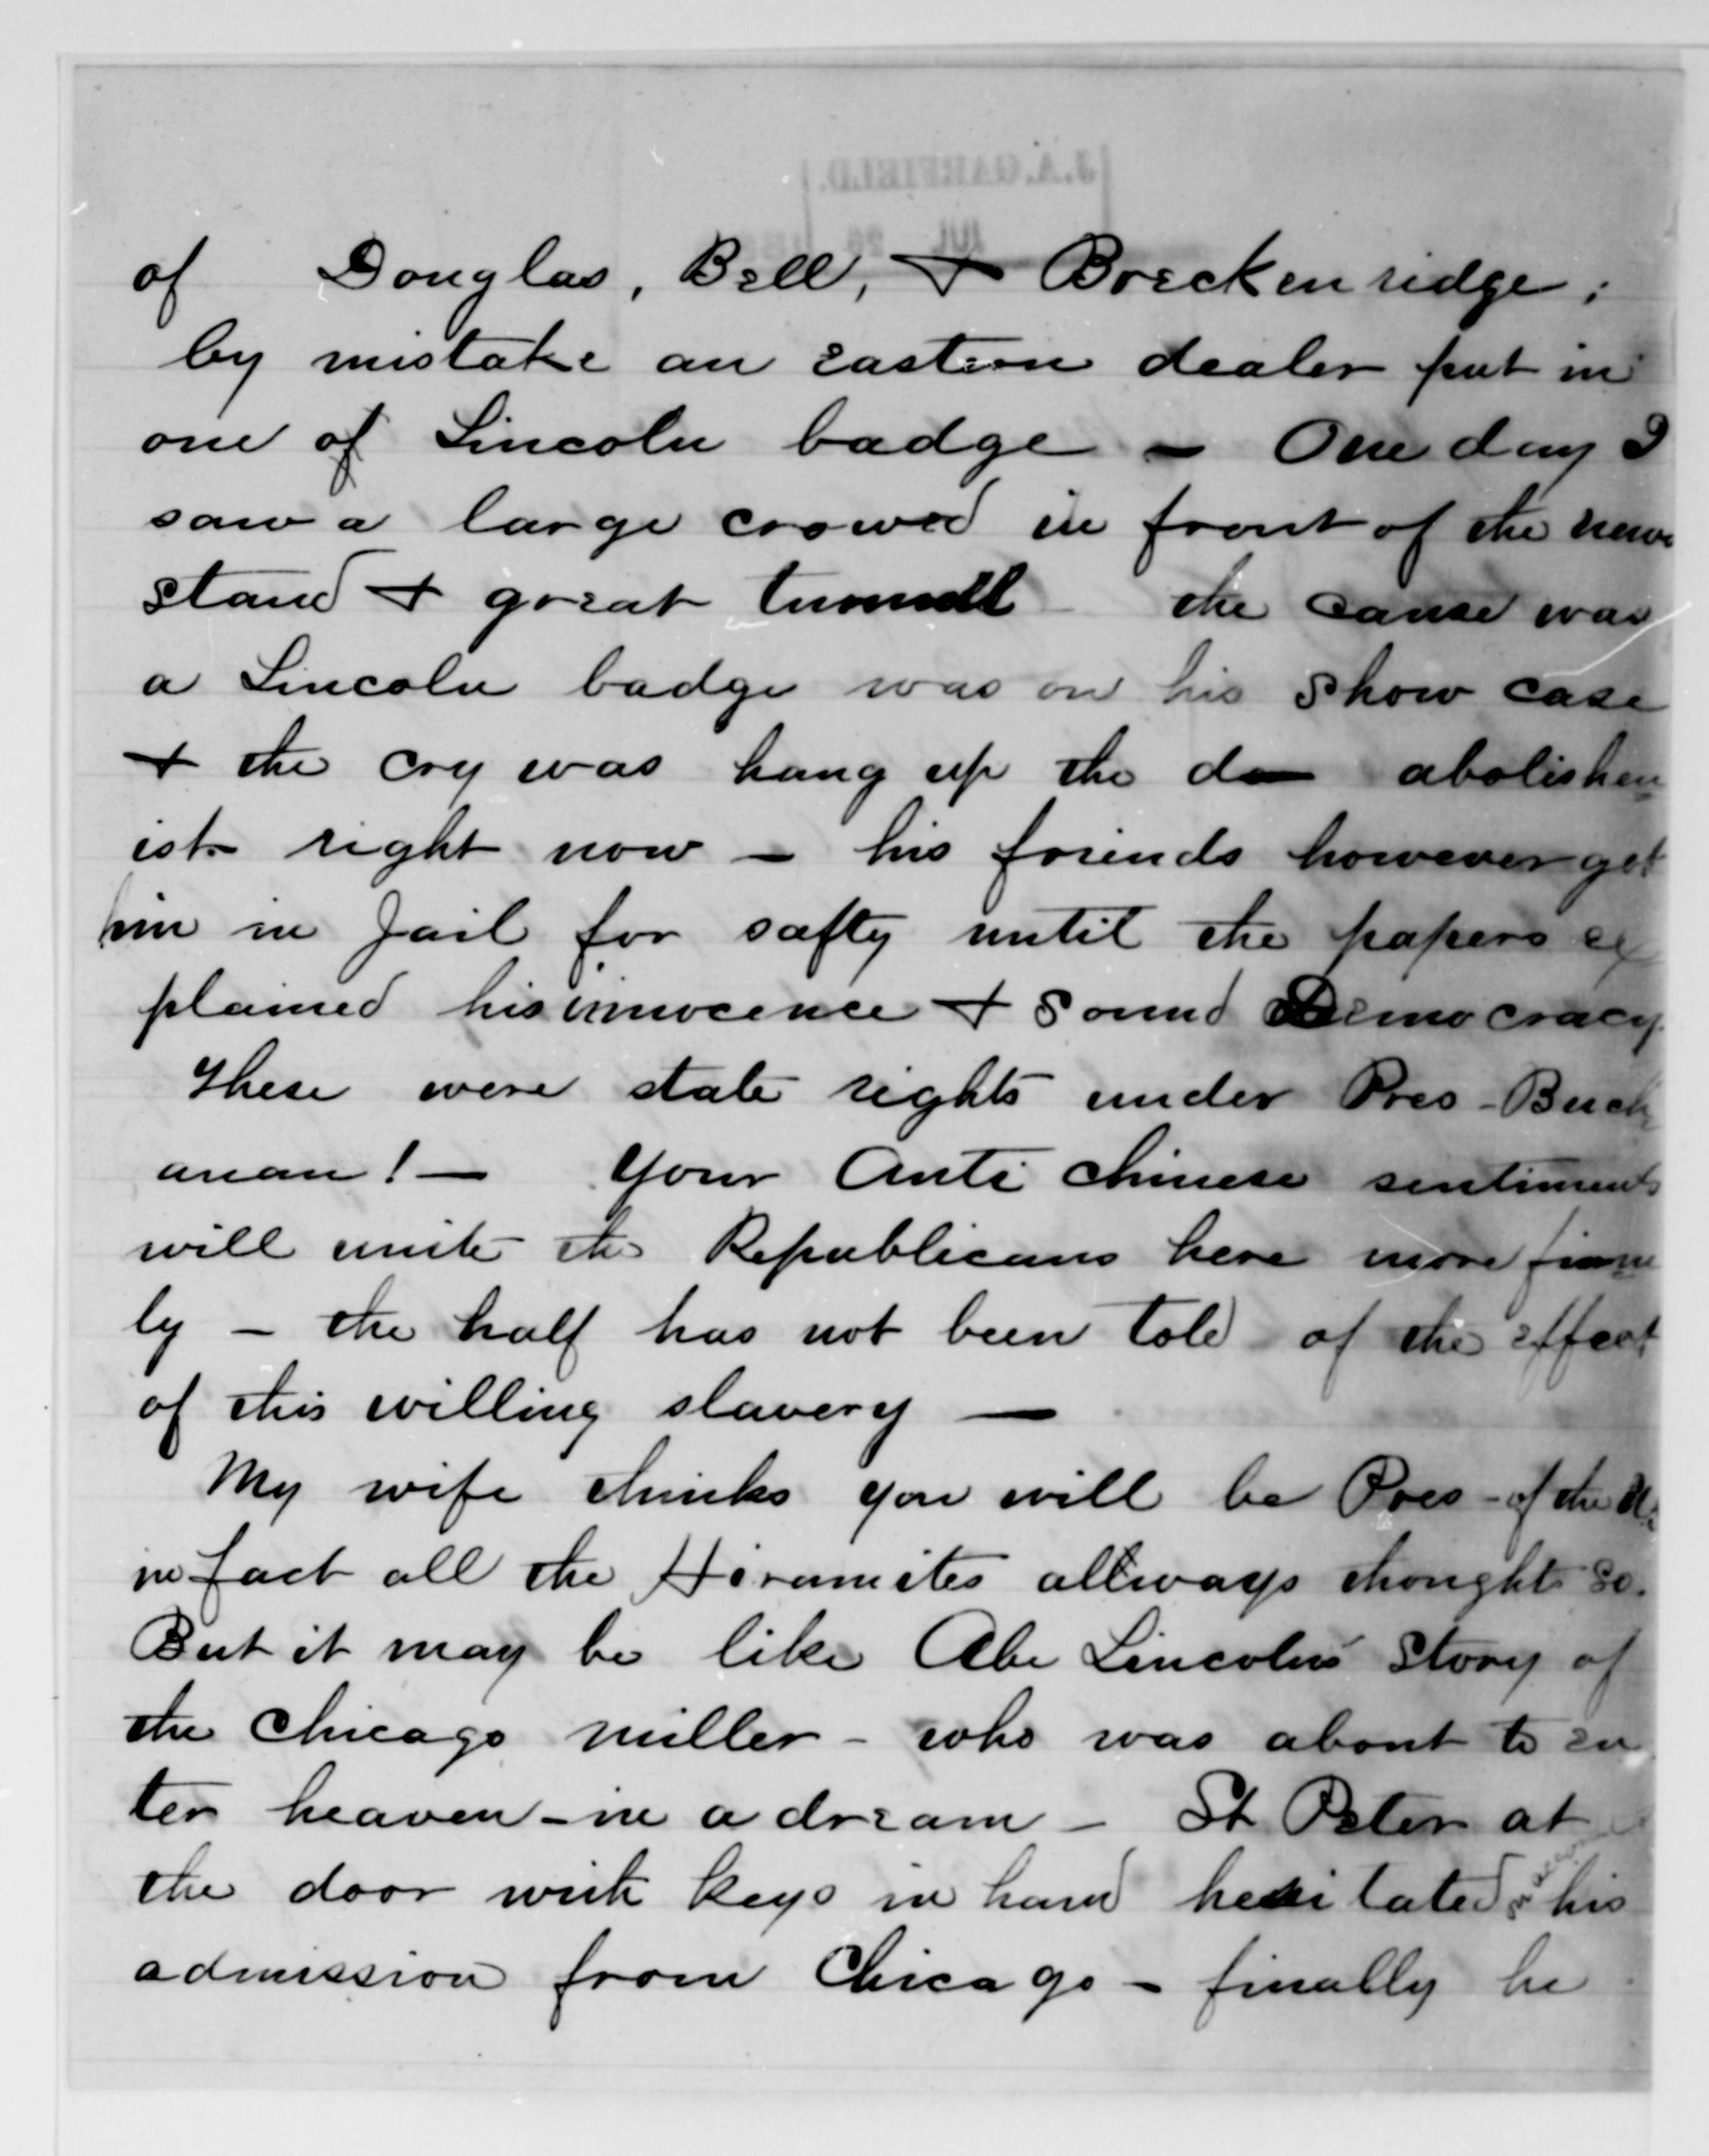 J.A. GARFIELD.
JUL
of Douglas, Bell, & Breckenridge;
by mistake an eastern dealer put in
one of Lincoln badge – One day I
saw a large crowed in front of the news
stand & great tumult the cause was
a Lincoln badge was on his show case
& the cry was hang up the d— abolishen
ist right now – his friends however get
him in Jail for safty until the papers ex
plained his innocence & sound Democracy
These were state rights under Pres – Buch
anan! — Your Anti chinese sentiments
will unite the Republicans here more firm
ly – the half has not been told of the effect
of this willing slavery —
My wife thinks you will be Pres – of the U.
in fact all the Hiramites allways thought so.
But it may be like Abe Lincolns' Story of
the Chicago miller – who was about to en
ter heaven – in a dream – St Peter at
the door with keys in hand hesitated his
admission from Chicago – finally he